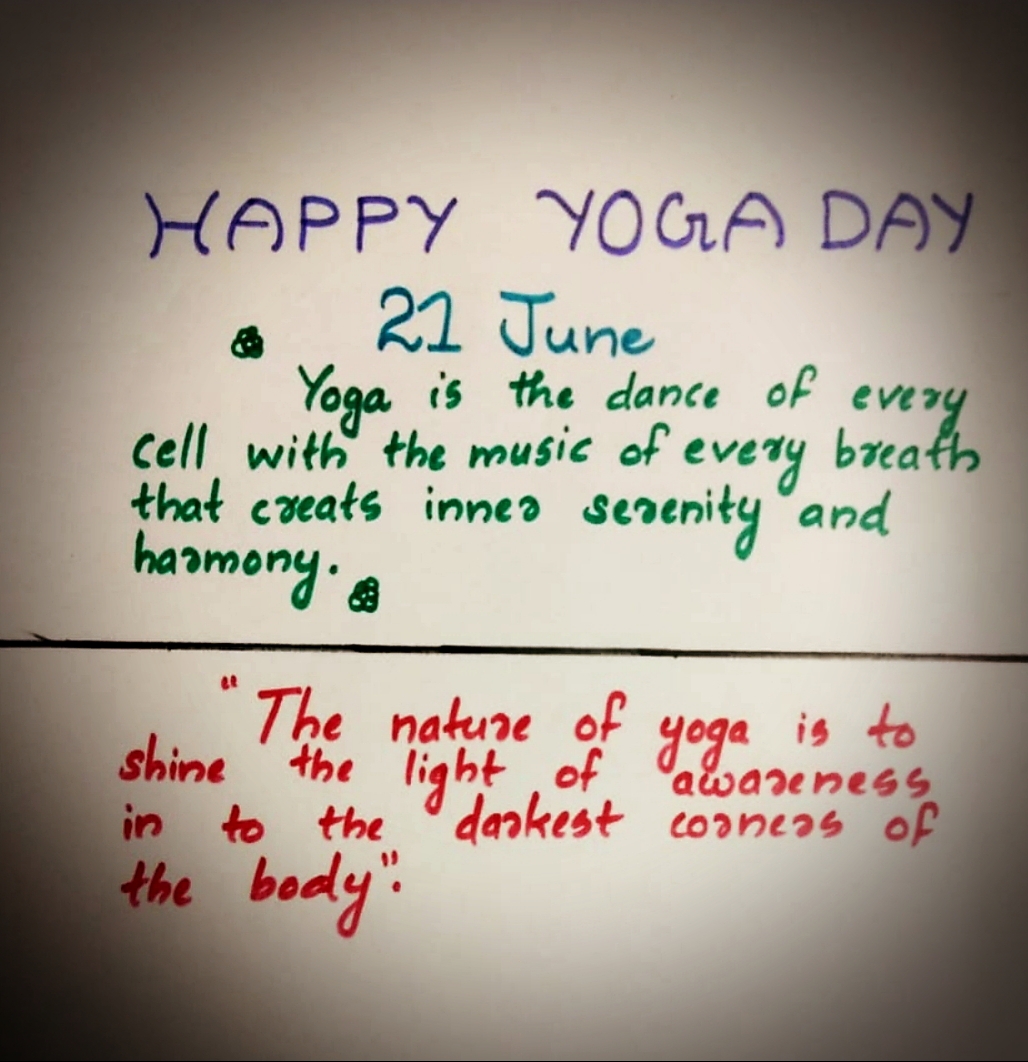 HAPPY YOGA DAY
21 June
Yoga is the dance of every
cell with the music of every breath
that creats inner serenity and
harmony.
"The nature of yoga is to
shine the light of awareness
in to the darkest corners of
the body".